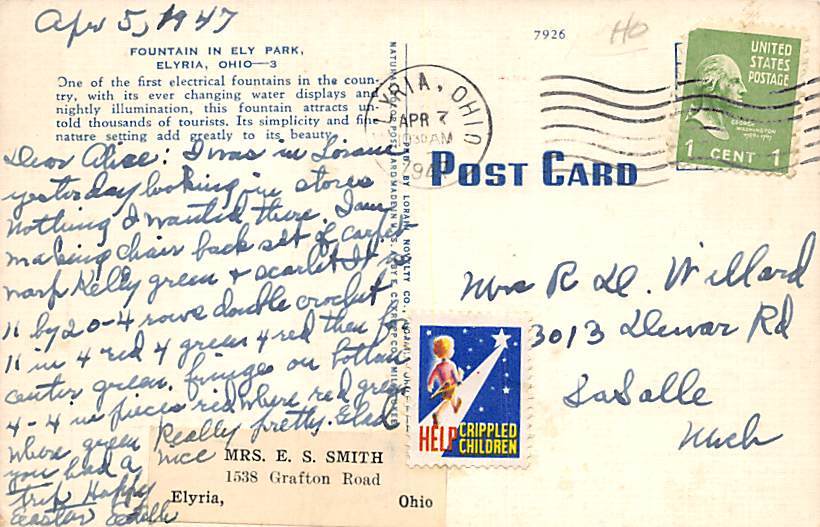 Apr 5, 1947
FOUNTAIN IN ELY PARK,
ELYRIA, OHIO—3
One of the first electrical fountains in the coun-
try, with its ever changing water displays and
nightly illumination, this fountain attracts un-
told thousands of tourists. Its simplicity and fine
nature setting add greatly to its beauty.
Dear Alice: I was in Lorain
yesterday looking in stores
nothing I wanted there. I am
making chair back set of carpet
warp Kelly green & scarlet It is
11 by 20-4 rows double crochet
11 in 4 red 4 green 4 red then
center green. fringe on bottom
4-4 in pieces red where red green
where green Really pretty. Glad
you had a nice
trip Happy
Easter Edith
MRS. E. S. SMITH
1538 Grafton Road
Elyria, Ohio
7926
HO
ELYRIA, OHIO
APR 7
AM
194
POST CARD
UNITED
STATES
POSTAGE
GEORGE
WASHINGTON
1 CENT 1
Mrs R D. Willard
3013 Dewar Rd
LaSalle
Mich
HELP CRIPPLED
CHILDREN